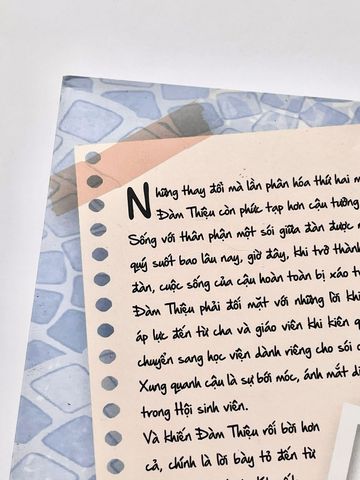 Những thay đổi mà lần phân hóa thứ hai
Đàm Thiệu còn phức tạp hơn cậu tưởng
Sống với thân phận một sói giữa đàn được
quý suốt bao lâu nay, giờ đây, khi trở thành
đàn, cuộc sống của cậu hoàn toàn bị xáo
Đàm Thiệu phải đối mặt với những lời
áp lực đến từ cha và giáo viên khi kiên
chuyển sang học viện dành riêng cho sói
Xung quanh cậu là sự bới móc, ánh mắt
trong Hội sinh viên.
Và khiến Đàm Thiệu rối bời hơn
cả, chính là lời bày tỏ đến từ